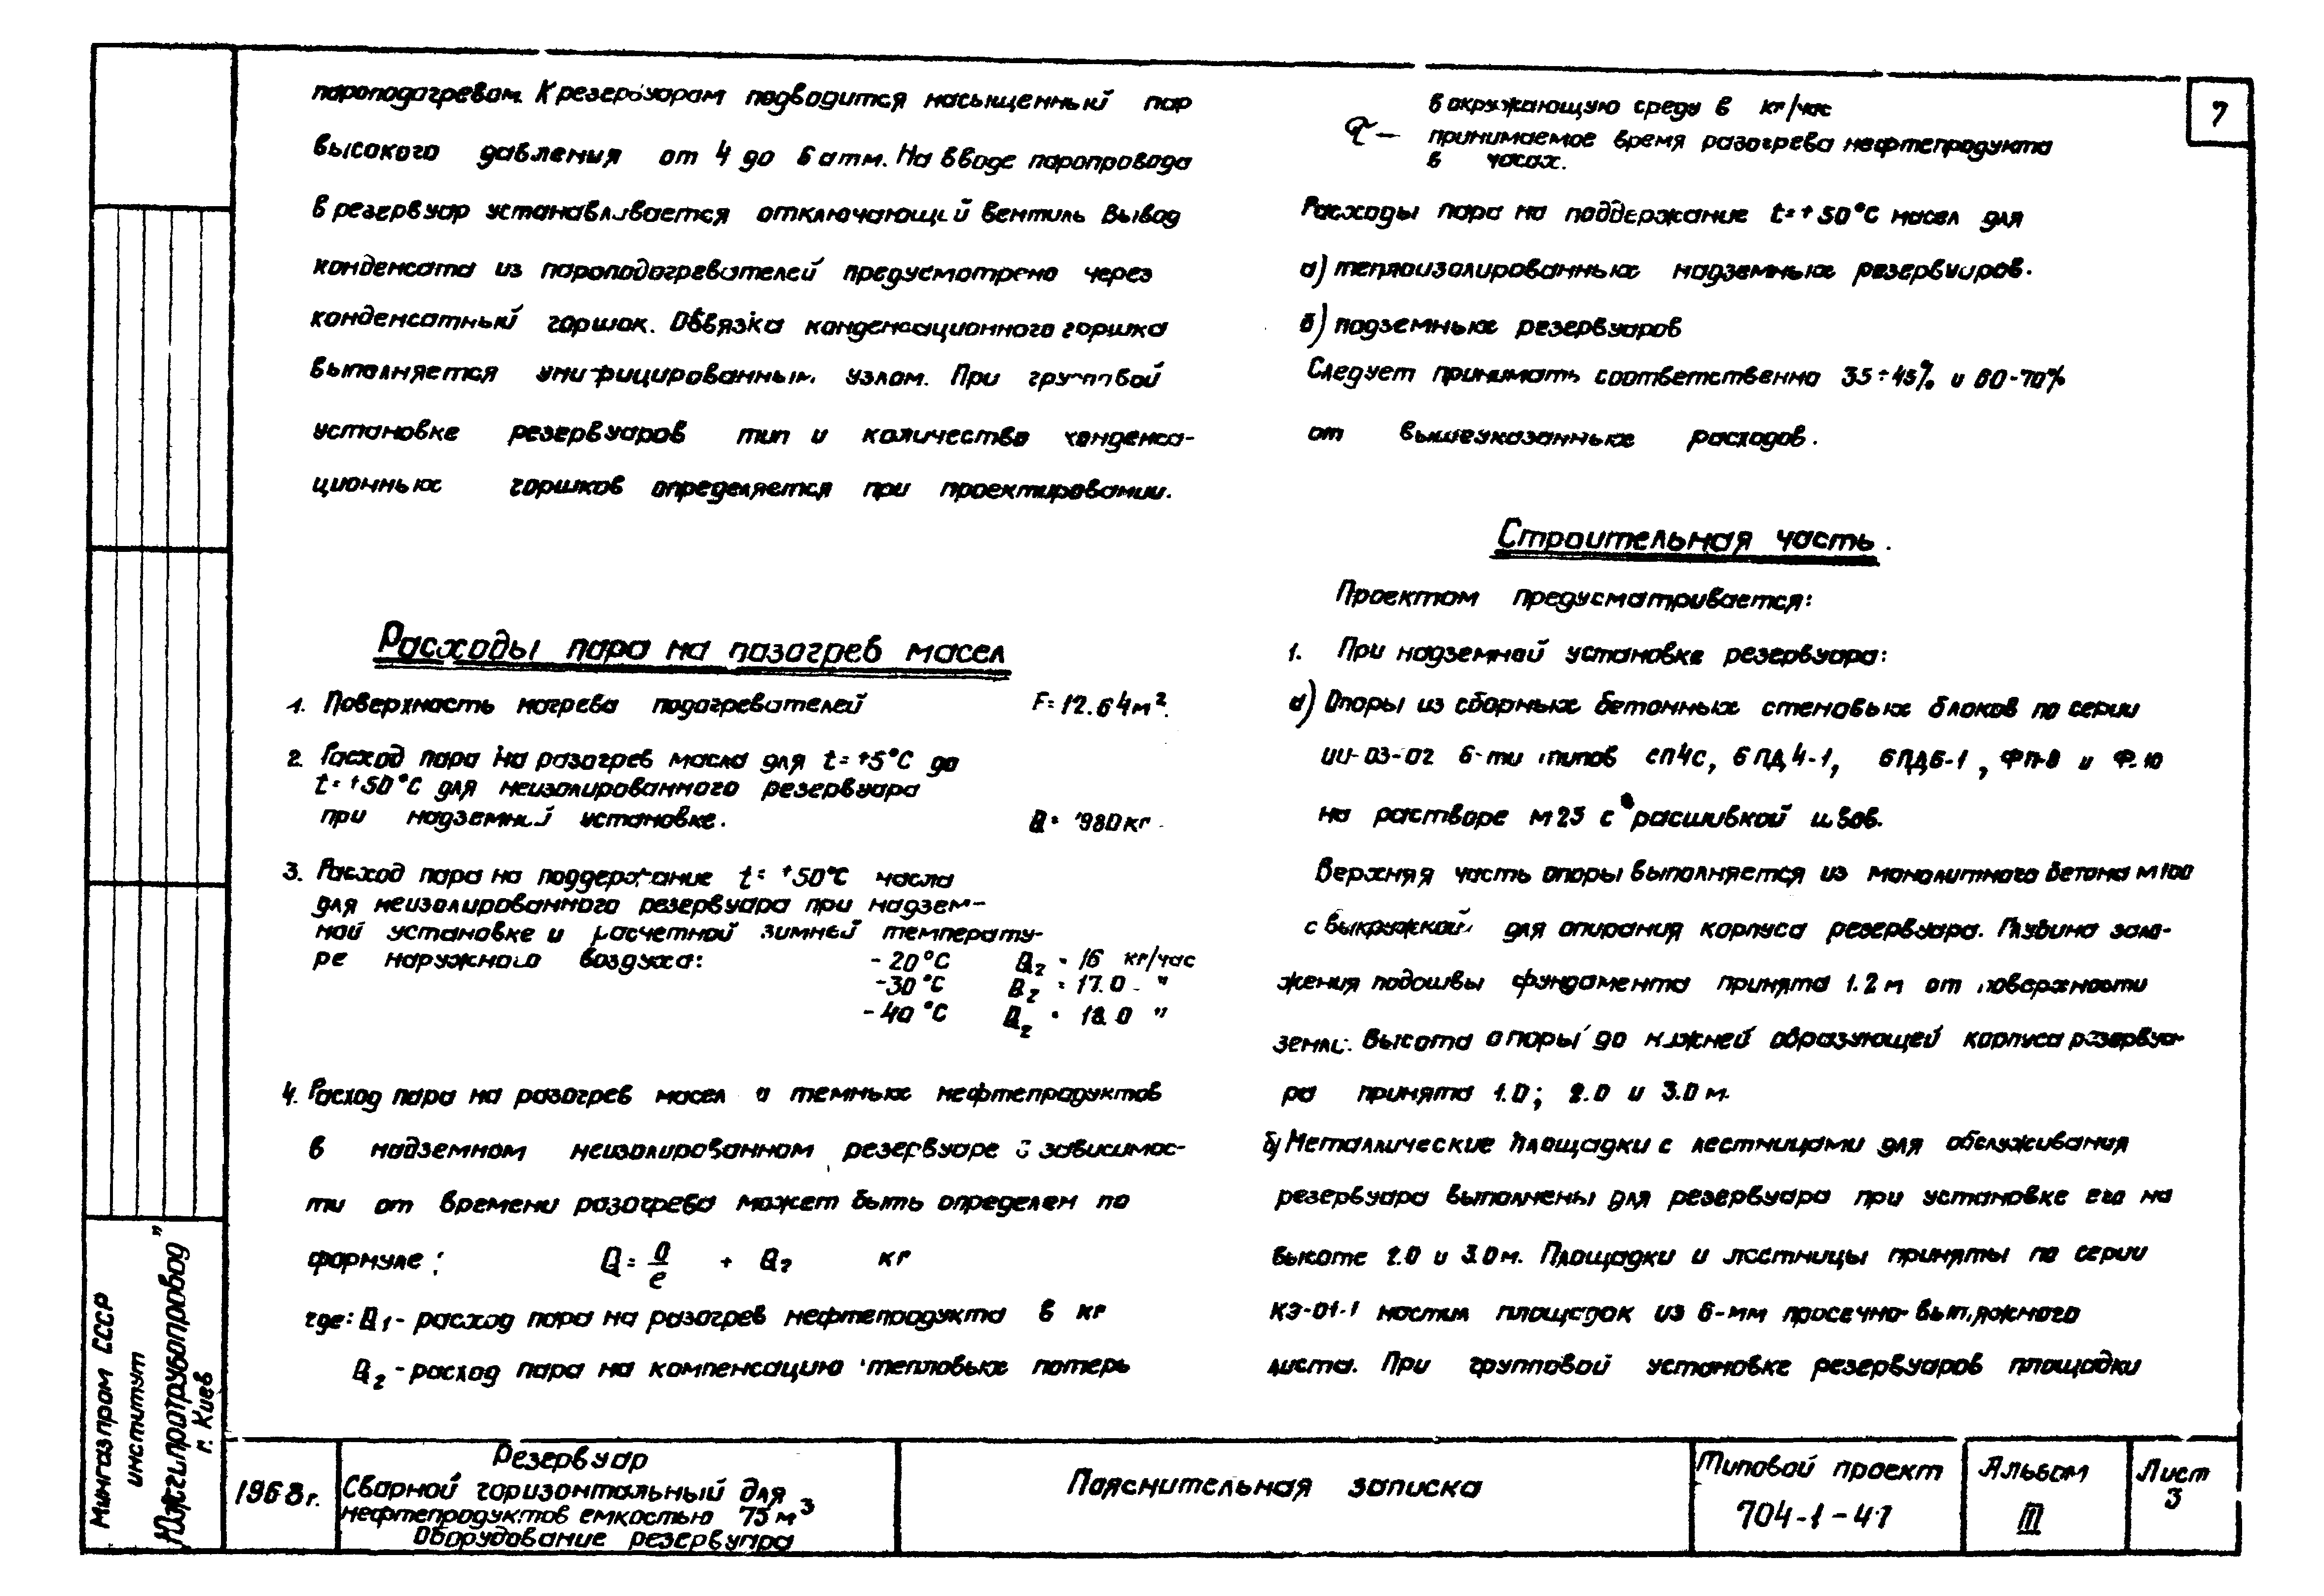 пароподогревом. К резервуарам подводится насыщенный пар
высокого давления от 4 до 6 атм. На вводе паропровода
в резервуар устанавливается отключающий вентиль Вывод
конденсата из пароподогревателей предусмотрено через
конденсатный горшок. Обвязка конденсационного горшка
выполняется унифицированным узлом. При групповой
установке резервуаров тип и количество конденса-
ционных горшков определяется при проектировании.
Расходы пара на разогрев масел
1. Поверхность нагрева подогревателей F=12.64м².
2. Расход пара на разогрев масла для t=+5°С до
t=+50°С для неизолированного резервуара
при надземной установке. Q= 980кг.
3. Расход пара на поддержание t=+50°С масла
для неизолированного резервуара при надзем-
ной установке и расчетной зимней температу-
ре наружного воздуха: -20°С Q₂ = 16 кг/час
-30°С Q₂ = 17.0 "
-40°С Q₂ = 18.0 "
4. Расход пара на разогрев масел и темных нефтепродуктов
в надземном неизолированном резервуаре в зависимос-
ти от времени разогрева может быть определен по
формуле: Q = Q/е + Q₂ кг
где: Q₁ - расход пара на разогрев нефтепродукта в кг
Q₂ - расход пара на компенсацию тепловых потерь
в окружающую среду в кг/час
τ — принимаемое время разогрева нефтепродукта
в часах.
Расходы пара на поддержание t=+50°С масел для
а) теплоизолированных надземных резервуаров.
б) подземных резервуаров
Следует принимать соответственно 35÷45% и 60-70%
от вышеуказанных расходов.
Строительная часть.
Проектом предусматривается:
1. При надземной установке резервуара:
а) Опоры из сборных бетонных стеновых блоков по серии
ИИ-03-02 6-ти типов СП4С, 6ПД4-1, 6ПД6-1, ФП-8 и Ф-10
на растворе М25 с расшивкой швов.
Верхняя часть опоры выполняется из монолитного бетона М100
с выкружкой для опирания корпуса резервуара. Глубина зало-
жения подошвы фундамента принята 1.2м от поверхности
земли. Высота опоры до нижней образующей корпуса резервуа-
ра принята 1.0; 2.0 и 3.0м.
б) Металлические площадки с лестницами для обслуживания
резервуара выполнены для резервуара при установке его на
высоте 2.0 и 3.0м. Площадки и лестницы приняты по серии
КЭ-01-1 настил площадок из 6-мм просечно-вытяжного
листа. При групповой установке резервуаров площадки
7
Мингазпром СССР
институт
"Южгипротрубопровод"
г. Киев
1968г.
Резервуар
Сварной горизонтальный для
нефтепродуктов емкостью 75м³
Оборудование резервуара
Пояснительная записка
Типовой проект
704-1-47
Альбом
III
Лист
3